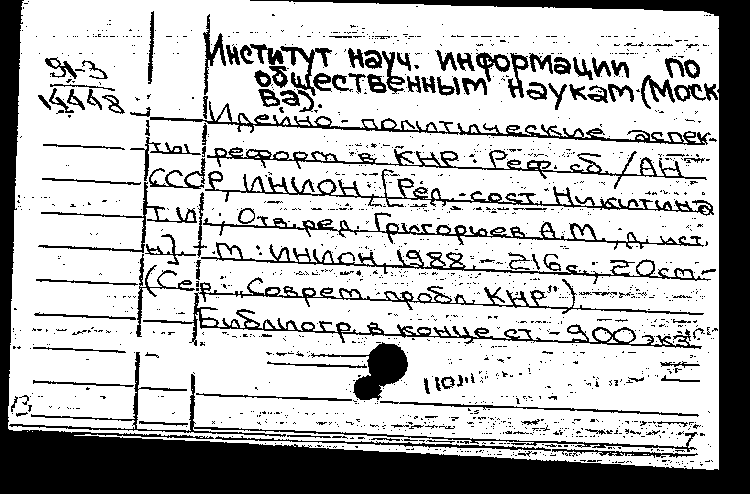 91-3
14448
Институт науч. информации по
общественным наукам (Моск-
ва).
Идейно-политические аспек-
ты реформ в КНР: Реф. сб. / АН
СССР, ИНИОН; [Ред.-сост. Никитина
Т.И.; Отв. ред. Григорьев А.М., д. ист.
н.]. - М.: ИНИОН, 1988. - 216 с.; 20 см. -
(Сер.: „Соврем. пробл. КНР").
Библиогр. в конце ст. - 900 экз.
В
7